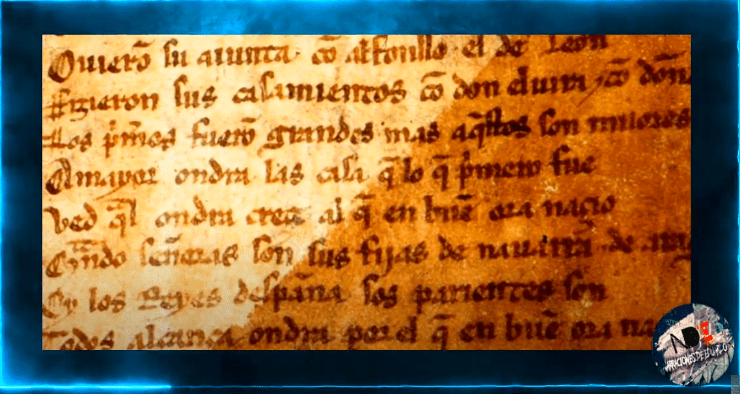 Ouierō su aiunta cō alfonsso el de Leon
ffizieron sus casamientos cō don eluira ⁊ cō doñ
Los p̄meros fuerō grandes mas aq̄stos son miiores
A mayor ondra las casa q̄ lo q̄ p̄mero fue
Ved q̄l ondra creçe al q̄ en buē ora naçio
Qn̄do señoras son sus fijas de nauarra ⁊ de arag
Oy los Reyes despaña sos parientes son
Todos alcança ondra por el q̄ en buē ora na